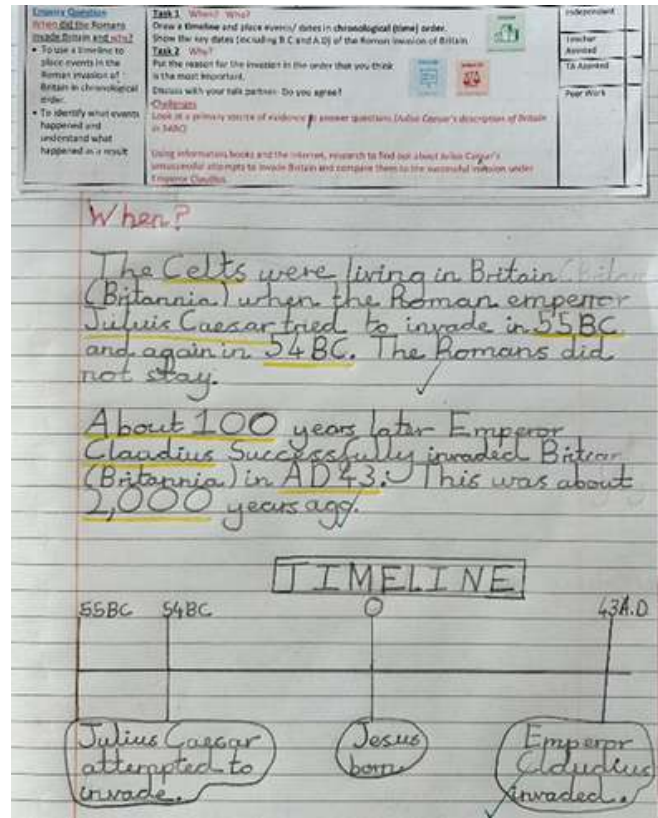 Enquiry Question
When did the Romans
invade Britain and why?
• To use a timeline to
place events in the
Roman invasion of
Britain in chronological
order.
• To identify what events
happened and
understand what
happened as a result
Task 1 When? Who?
Draw a timeline and place events/ dates in chronological (time) order.
Show the key dates (including B.C and A.D) of the Roman invasion of Britain
Task 2 Why?
Put the reason for the invasion in the order that you think
is the most important.
Discuss with your talk partner. Do you agree?
Challenges
Look at a primary source of evidence to answer questions (Julius Caesar's description of Britain
in 54BC)
Using information books and the internet, research to find out about Julius Caesar's
unsuccessful attempts to invade Britain and compare them to the successful invasion under
Emperor Claudius.
Independent
Teacher
Assisted
TA Assisted
Peer Work
When?
The Celts were living in Britain
(Britannia) when the Roman emperor
Juluis Caesar tried to invade in 55BC
and again in 54BC. The Romans did
not stay.
About 100 years later Emperor
Claudius Successfully invaded
(Britannia) in AD43. This was about
2,000 years ago.
TIMELINE
55BC 54BC 0 43A.D
Julius Caesar
attempted to
invade.
Jesus
born.
Emperor
Claudius
invaded.